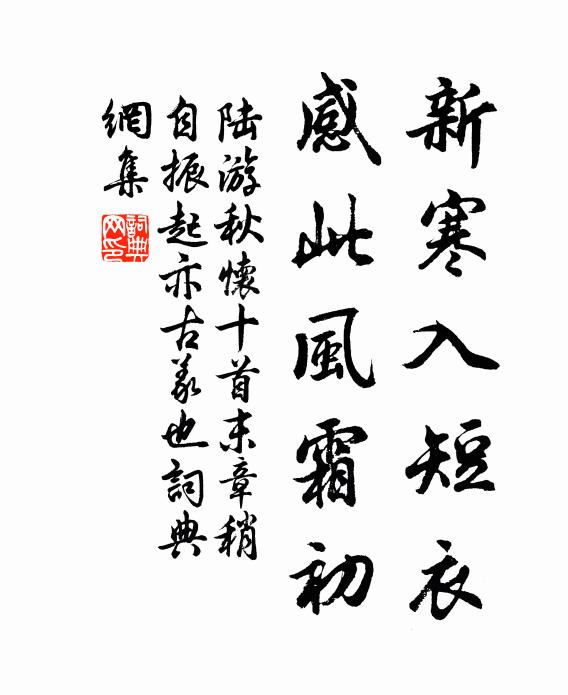 新寒入短衣
感此風霜初
陆游秋懷十首末章稍
自振起亦古義也詞典
網集
詞典
网印